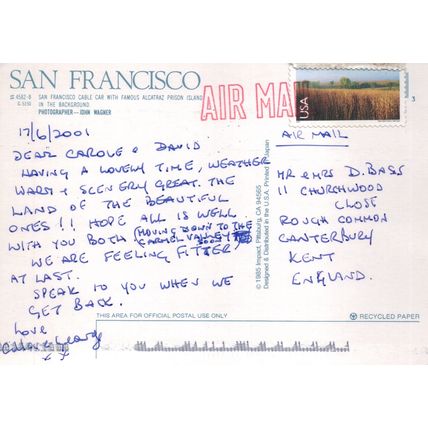 SAN FRANCISCO
SAN FRANCISCO CABLE CAR WITH FAMOUS ALCATRAZ PRISON ISLAND
IN THE BACKGROUND.
PHOTOGRAPHER — JOHN WAGNER
AIR MA
USA
3
17/6/2001
DEAR CAROLE & DAVID
HAVING A LOVELY TIME, WEATHER
WARM & SCENERY GREAT. THE
LAND OF THE BEAUTIFUL
ONES!! HOPE ALL IS WELL
WITH YOU BOTH (MOVING DOWN TO THE
CARMEL VALLEY SOON)
WE ARE FEELING FITTER
AT LAST.
SPEAK TO YOU WHEN WE
GET BACK.
Love
x x
© 1985 Impact, Pittsburg, CA 94565
Designed & Distributed in the U.S.A. Printed in Japan
AIR MAIL
MR & MRS D. BASS
11 CHURCHWOOD
CLOSE
ROUGH COMMON
CANTERBURY
KENT
ENGLAND.
THIS AREA FOR OFFICIAL POSTAL USE ONLY
RECYCLED PAPER